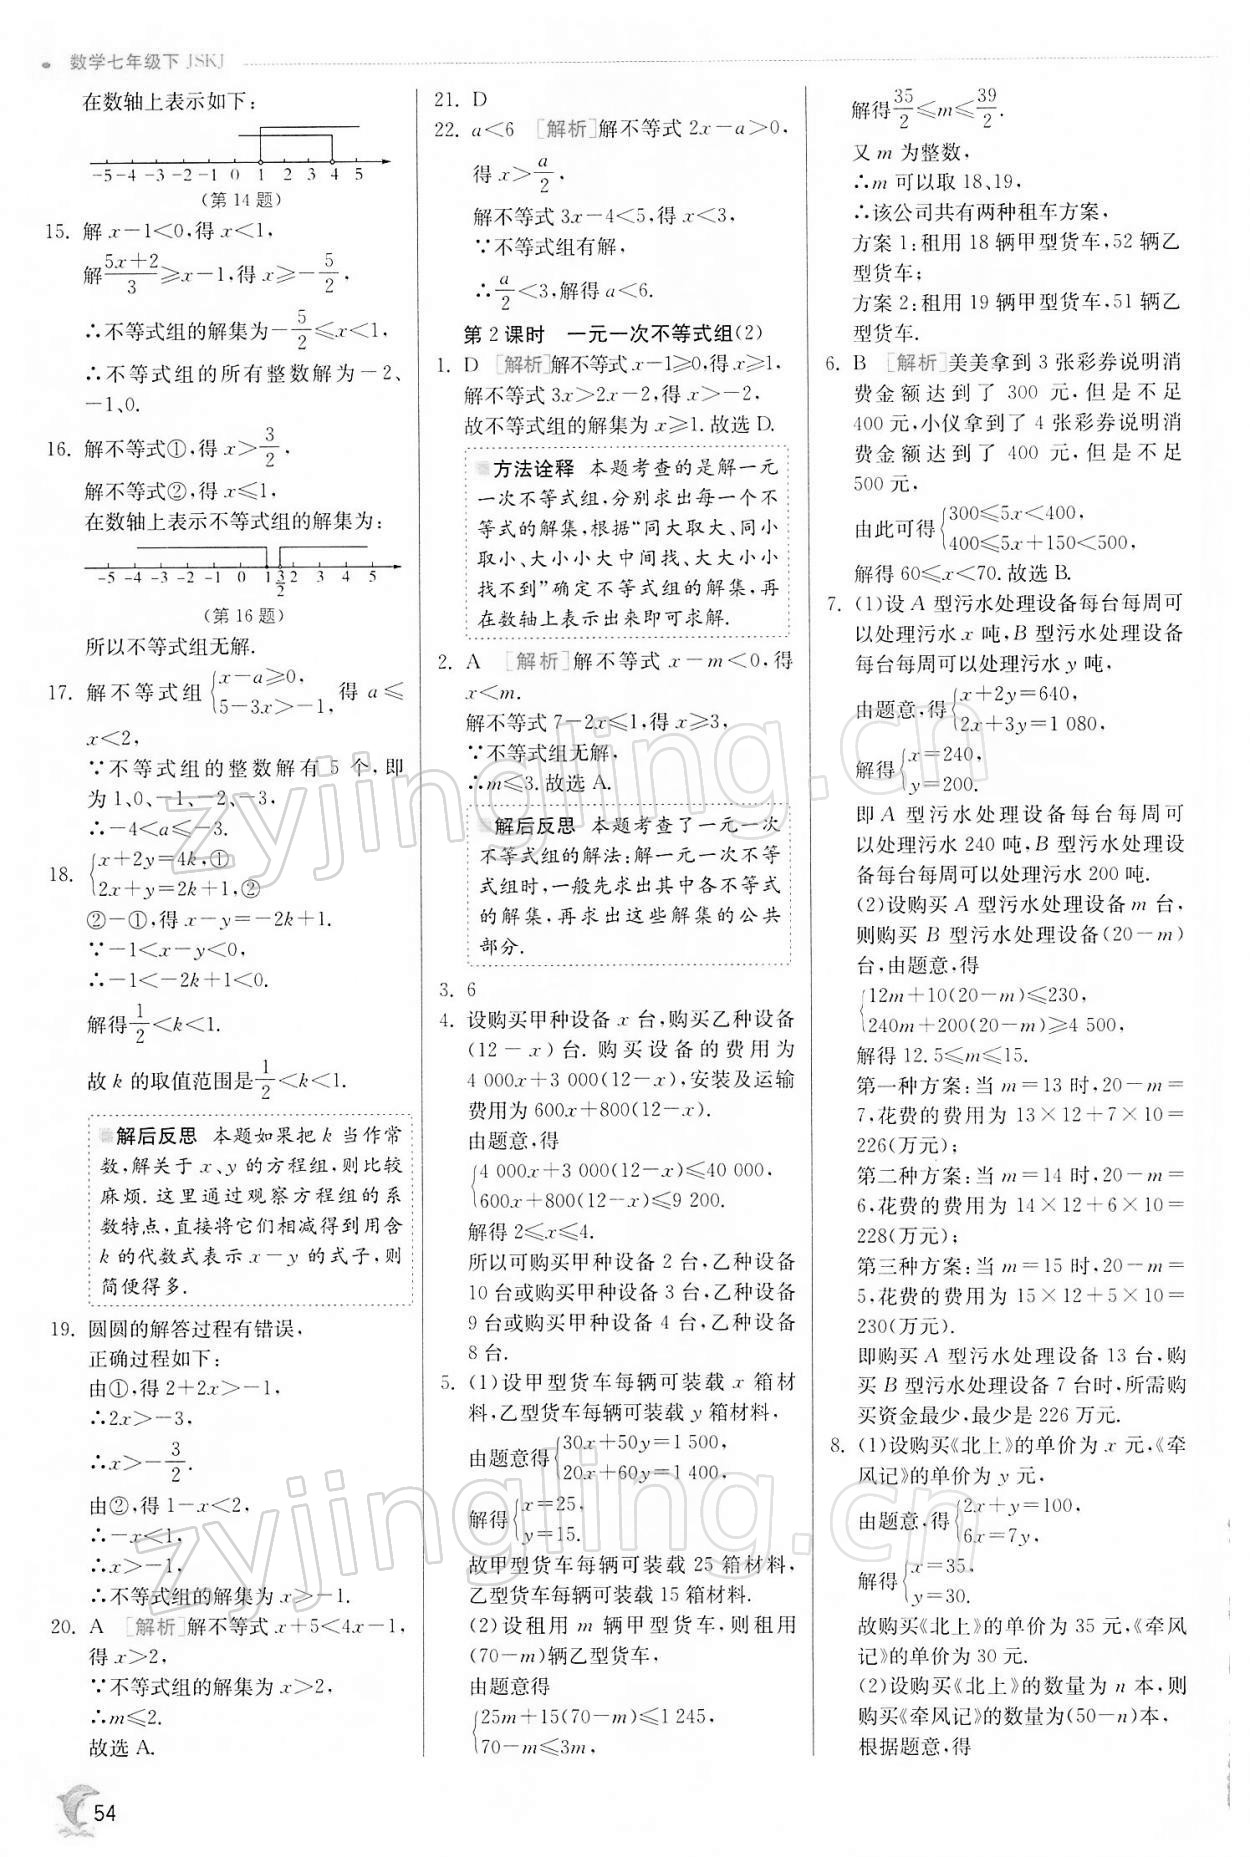 数学七年级下 JSKJ
在数轴上表示如下:
-5 -4 -3 -2 -1 0 1 2 3 4 5
(第14题)
15. 解 x-1<0,得 x<1,
解 (5x+2)/3 ≥x-1,得 x≥-5/2,
∴不等式组的解集为-5/2≤x<1,
∴不等式组的所有整数解为-2、
-1、0.
16. 解不等式①,得 x>3/2,
解不等式②,得 x≤1,
在数轴上表示不等式组的解集为:
-5 -4 -3 -2 -1 0 1 3/2 2 3 4 5
(第16题)
所以不等式组无解.
17. 解不等式组{x-a≥0, 5-3x>-1, 得 a≤
x<2,
∵不等式组的整数解有 5 个,即
为1、0、-1、-2、-3,
∴-4<a≤-3.
18. {x+2y=4k,① 2x+y=2k+1,②
②-①,得 x-y=-2k+1.
∵-1<x-y<0,
∴-1<-2k+1<0.
解得1/2<k<1.
故 k 的取值范围是1/2<k<1.
解后反思 本题如果把 k 当作常
数,解关于 x、y 的方程组,则比较
麻烦. 这里通过观察方程组的系
数特点,直接将它们相减得到用含
k 的代数式表示 x-y 的式子,则
简便得多.
19. 圆圆的解答过程有错误,
正确过程如下:
由①,得 2+2x>-1,
∴2x>-3,
∴x>-3/2.
由②,得 1-x<2,
∴-x<1,
∴x>-1.
∴不等式组的解集为 x>-1.
20. A [解析]解不等式 x+5<4x-1,
得 x>2,
∵不等式组的解集为 x>2,
∴m≤2.
故选 A.
54
21. D
22. a<6 [解析]解不等式 2x-a>0,
得 x>a/2,
解不等式 3x-4<5,得 x<3,
∵不等式组有解,
∴a/2<3,解得 a<6.
第2课时 一元一次不等式组(2)
1. D [解析]解不等式 x-1≥0,得 x≥1,
解不等式 3x>2x-2,得 x>-2,
故不等式组的解集为 x≥1. 故选 D.
方法诠释 本题考查的是解一元
一次不等式组,分别求出每一个不
等式的解集,根据“同大取大、同小
取小、大小小大中间找、大大小小
找不到”确定不等式组的解集,再
在数轴上表示出来即可求解.
2. A [解析]解不等式 x-m<0,得
x<m.
解不等式 7-2x≤1,得 x≥3,
∵不等式组无解,
∴m≤3. 故选 A.
解后反思 本题考查了一元一次
不等式组的解法:解一元一次不等
式组时,一般先求出其中各不等式
的解集,再求出这些解集的公共
部分.
3. 6
4. 设购买甲种设备 x 台,购买乙种设备
(12-x)台. 购买设备的费用为
4 000x+3 000(12-x),安装及运输
费用为 600x+800(12-x).
由题意,得
{4 000x+3 000(12-x)≤40 000,
600x+800(12-x)≤9 200.
解得 2≤x≤4.
所以可购买甲种设备 2 台,乙种设备
10 台或购买甲种设备 3 台,乙种设备
9 台或购买甲种设备 4 台,乙种设备
8 台.
5. (1)设甲型货车每辆可装载 x 箱材
料,乙型货车每辆可装载 y 箱材料,
由题意得{30x+50y=1 500, 20x+60y=1 400,
解得{x=25, y=15.
故甲型货车每辆可装载 25 箱材料,
乙型货车每辆可装载 15 箱材料.
(2)设租用 m 辆甲型货车,则租用
(70-m)辆乙型货车,
由题意得
{25m+15(70-m)≤1 245,
70-m≤3m,
解得35/2≤m≤39/2.
又 m 为整数,
∴m 可以取 18、19,
∴该公司共有两种租车方案,
方案 1:租用 18 辆甲型货车,52 辆乙
型货车;
方案 2:租用 19 辆甲型货车,51 辆乙
型货车.
6. B [解析]美美拿到 3 张彩券说明消
费金额达到了 300 元,但是不足
400 元,小仪拿到了 4 张彩券说明消
费金额达到了 400 元,但是不足
500 元,
由此可得{300≤5x<400, 400≤5x+150<500,
解得 60≤x<70. 故选 B.
7. (1)设 A 型污水处理设备每台每周可
以处理污水 x 吨,B 型污水处理设备
每台每周可以处理污水 y 吨,
由题意,得{x+2y=640, 2x+3y=1 080,
解得{x=240, y=200.
即 A 型污水处理设备每台每周可
以处理污水 240 吨,B 型污水处理设
备每台每周可以处理污水 200 吨.
(2)设购买 A 型污水处理设备 m 台,
则购买 B 型污水处理设备(20-m)
台,由题意,得
{12m+10(20-m)≤230,
240m+200(20-m)≥4 500,
解得 12.5≤m≤15.
第一种方案:当 m=13 时,20-m=
7,花费的费用为 13×12+7×10=
226(万元);
第二种方案:当 m=14 时,20-m=
6,花费的费用为 14×12+6×10=
228(万元);
第三种方案:当 m=15 时,20-m=
5,花费的费用为 15×12+5×10=
230(万元).
即购买 A 型污水处理设备 13 台,购
买 B 型污水处理设备 7 台时,所需购
买资金最少,最少是 226 万元.
8. (1)设购买《北上》的单价为 x 元,《牵
风记》的单价为 y 元,
由题意,得{2x+y=100, 6x=7y,
解得{x=35, y=30.
故购买《北上》的单价为 35 元,《牵风
记》的单价为 30 元.
(2)设购买《北上》的数量为 n 本,则
购买《牵风记》的数量为(50-n)本,
根据题意,得
zyjingling.cn
zyjingling.cn